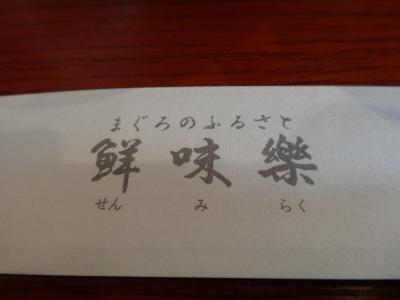 まぐろのふるさと
鮮味樂
せんみらく